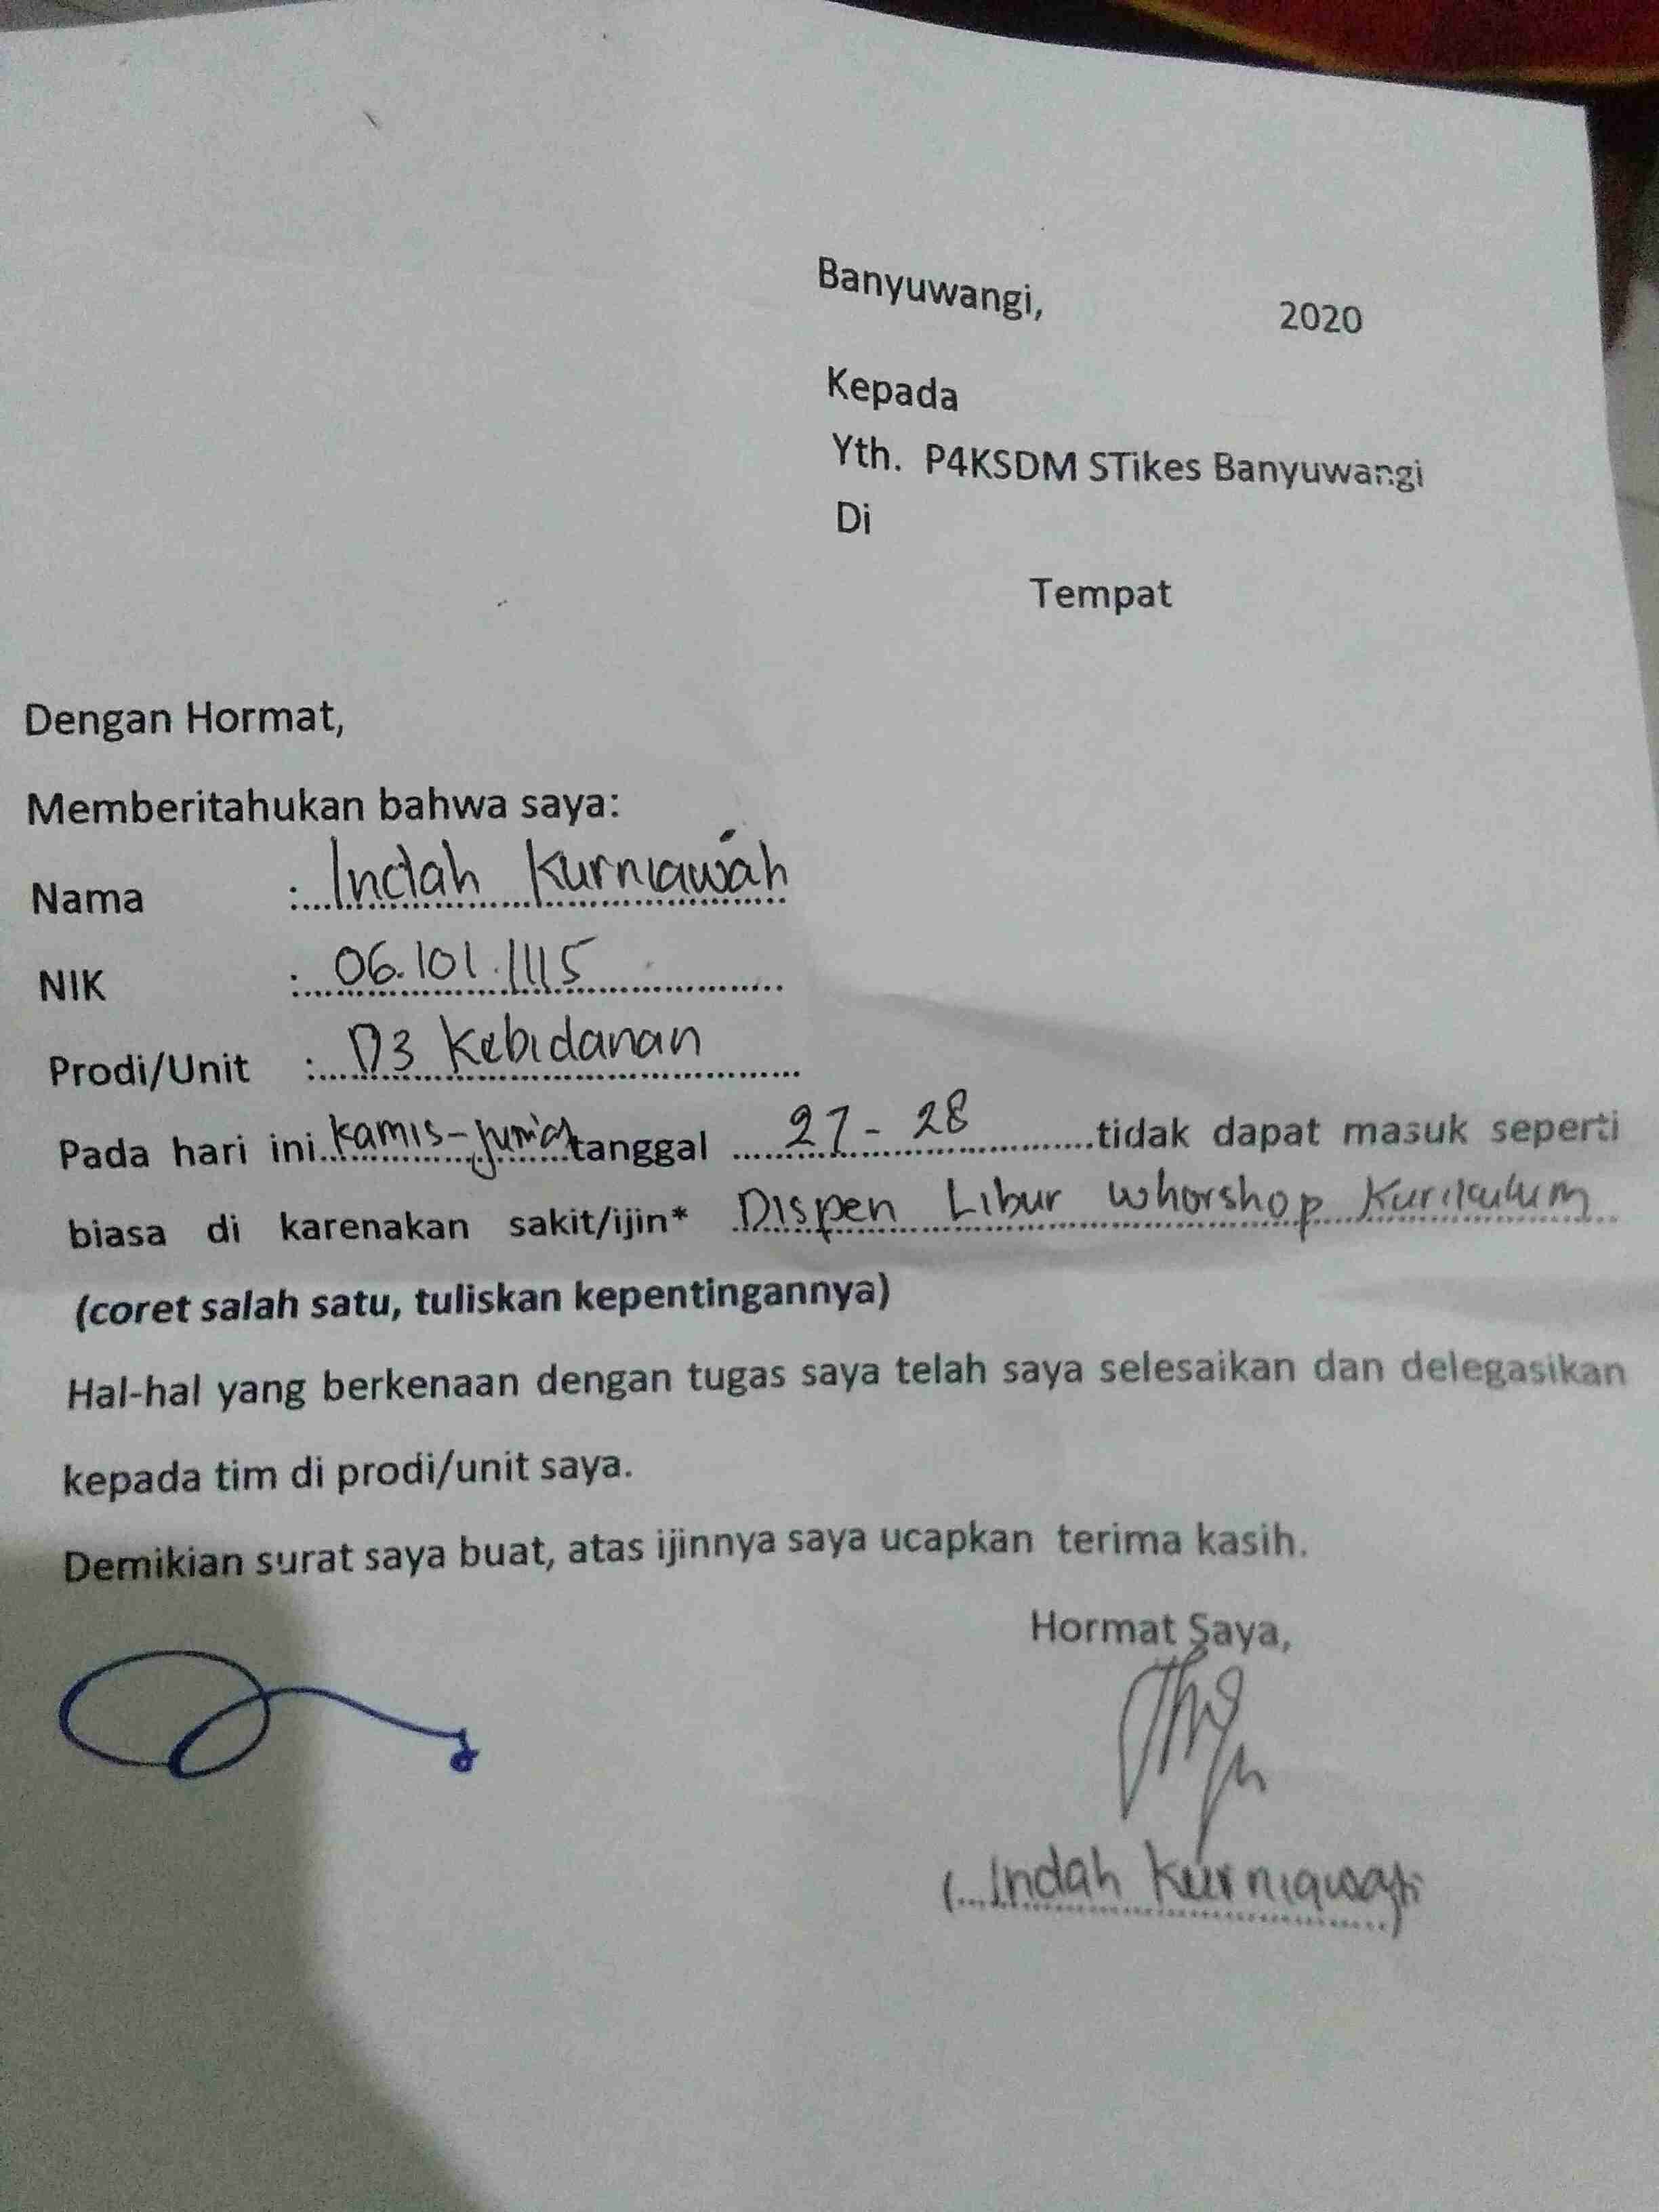 Banyuwangi, 2020
Kepada
Yth. P4KSDM STikes Banyuwangi
Di
Tempat
Dengan Hormat,
Memberitahukan bahwa saya:
Nama : Indah Kurniawati
NIK : 06.101.1115
Prodi/Unit : D3 Kebidanan
Pada hari ini kamis-jum'at tanggal 27 - 28 tidak dapat masuk seperti
biasa di karenakan sakit/ijin* Dispen Libur whorshop Kurikulum
(coret salah satu, tuliskan kepentingannya)
Hal-hal yang berkenaan dengan tugas saya telah saya selesaikan dan delegasikan
kepada tim di prodi/unit saya.
Demikian surat saya buat, atas ijinnya saya ucapkan terima kasih.
Hormat Saya,
(Indah Kurniawati)